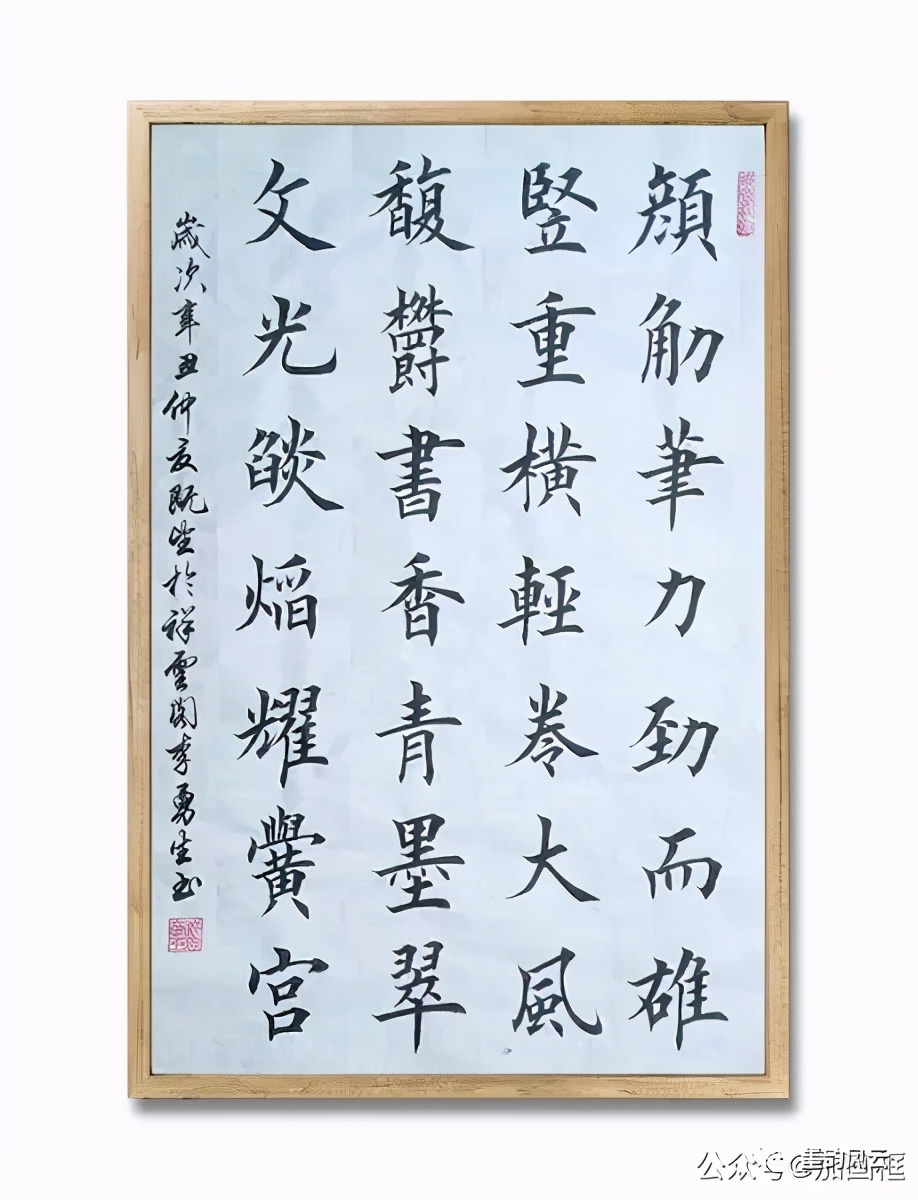 顔觔筆力勁而雄
竪重橫輕卷大風
馥欝書香青墨翠
文光燄焰耀黌宮
歲次辛丑仲夏既望於祥雲閣李勇生书
公众号